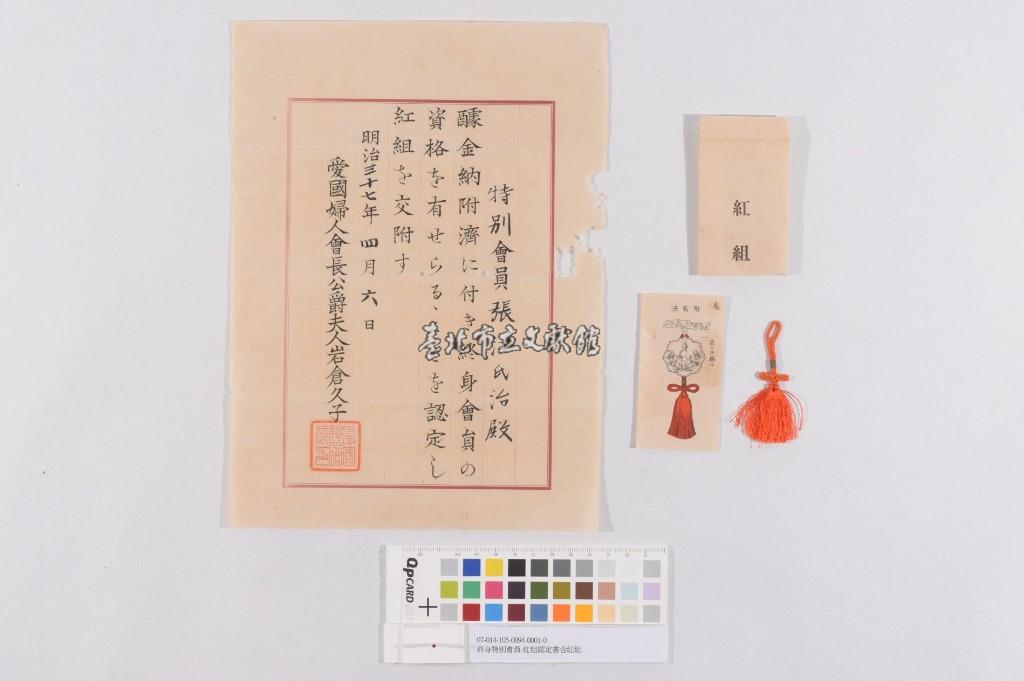 特別會員張氏治殿
醵金納附濟に付き終身會員の
資格を有せらるゝを認定し
紅組を交附す
明治三十七年四月六日
愛國婦人會長公爵夫人岩倉久子
臺北市立文獻館
紅組
附着法
QPCARD
07-014-105-0094-0001-0
終身特別會員-紅組認定書含紅組